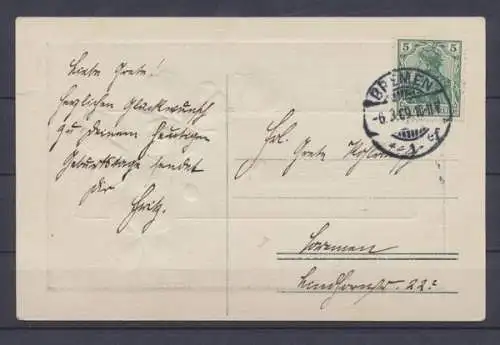 Liebe Grete!
Herzlichen Glückwunsch
zu deinem heutigen
Geburtstage sendet
dir
Fritz.
5 5
BREMEN
-6.3.09.10-11V
Frl.
Grete
Bremen
22